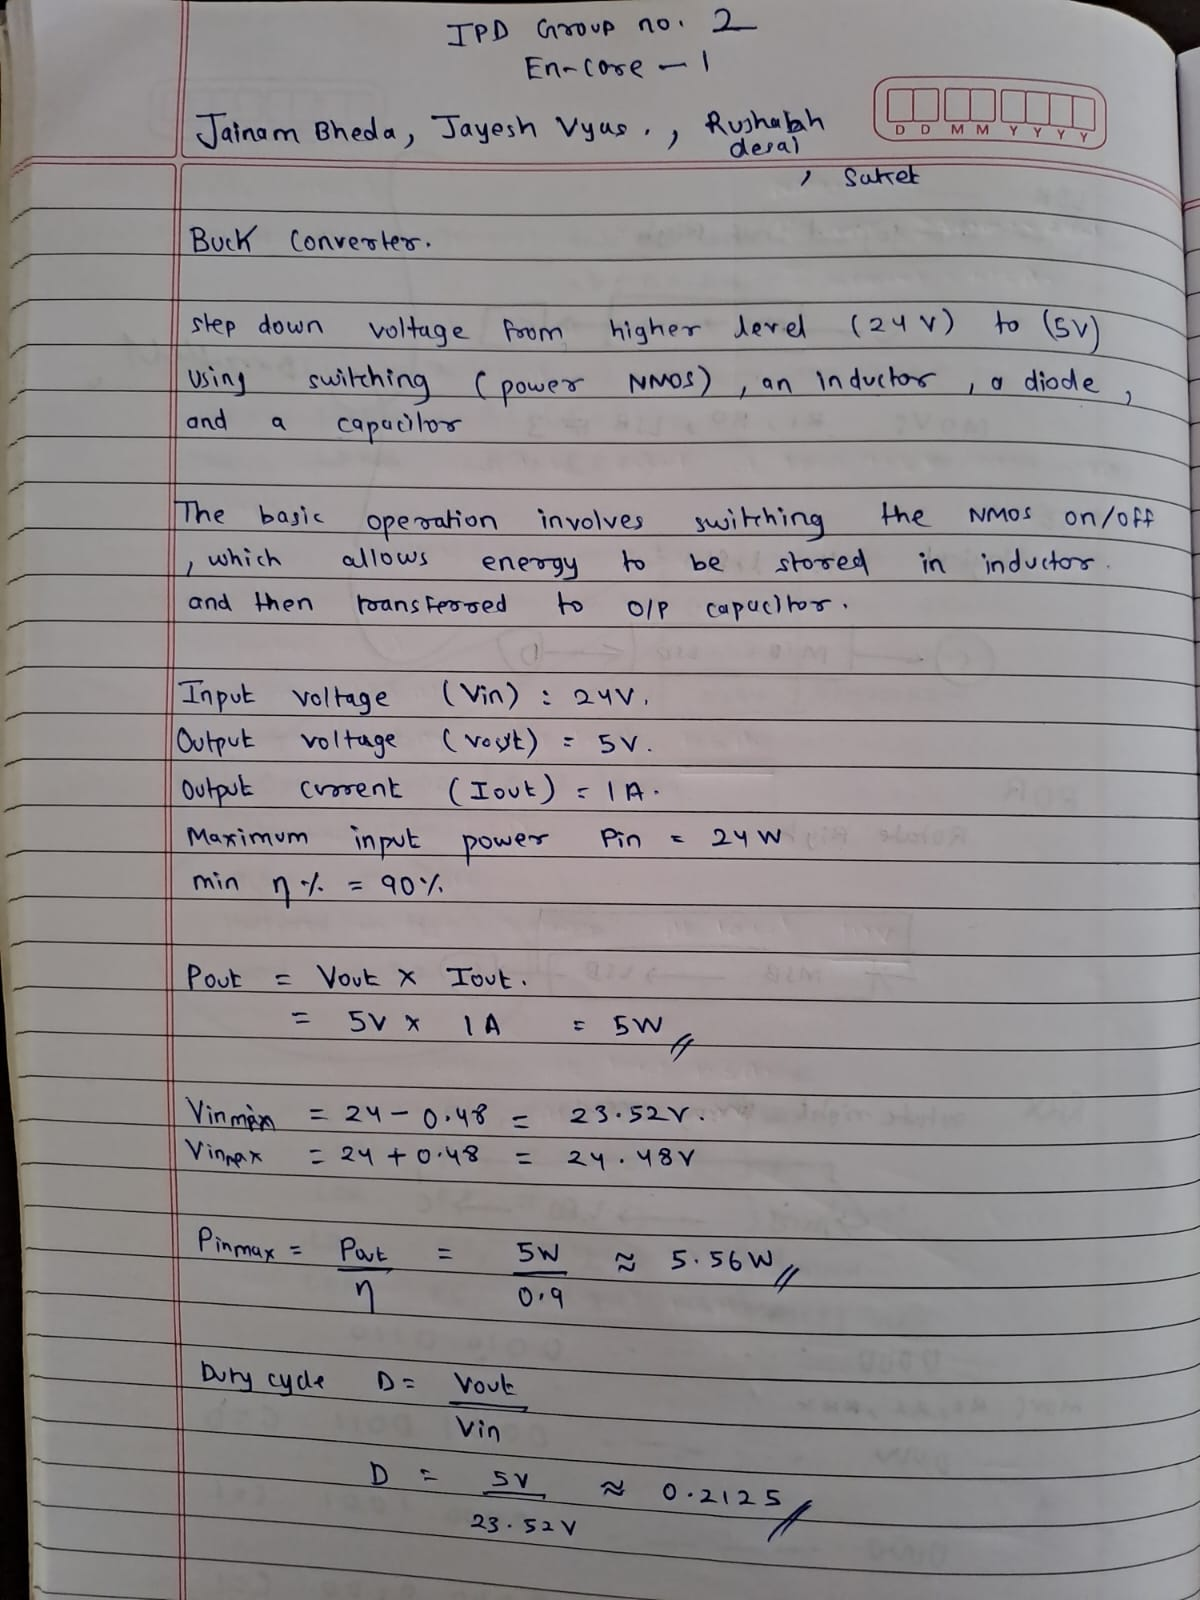 IPD Group no. 2
En-Core - 1
Jainam Bheda, Jayesh Vyas., Rushabh desai
, Saket
D D M M Y Y Y Y
Buck Converter.
step down voltage from higher level (24V) to (5V)
using switching (power NMOS), an inductor, a diode,
and a capacitor
The basic operation involves switching the NMOS on/off
, which allows energy to be stored in inductor.
and then transferred to O/P capacitor.
Input voltage (Vin) : 24V.
Output voltage (Vout) = 5V.
Output current (Iout) = 1A.
Maximum input power Pin = 24W
min η% = 90%
Pout = Vout x Iout.
= 5V x 1A = 5W
Vinmin = 24 - 0.48 = 23.52V.
Vinmax = 24 + 0.48 = 24.48V
Pinmax = Pout/η = 5W/0.9 ≈ 5.56W
Duty cycle D = Vout/Vin
D = 5V/23.52V ≈ 0.2125